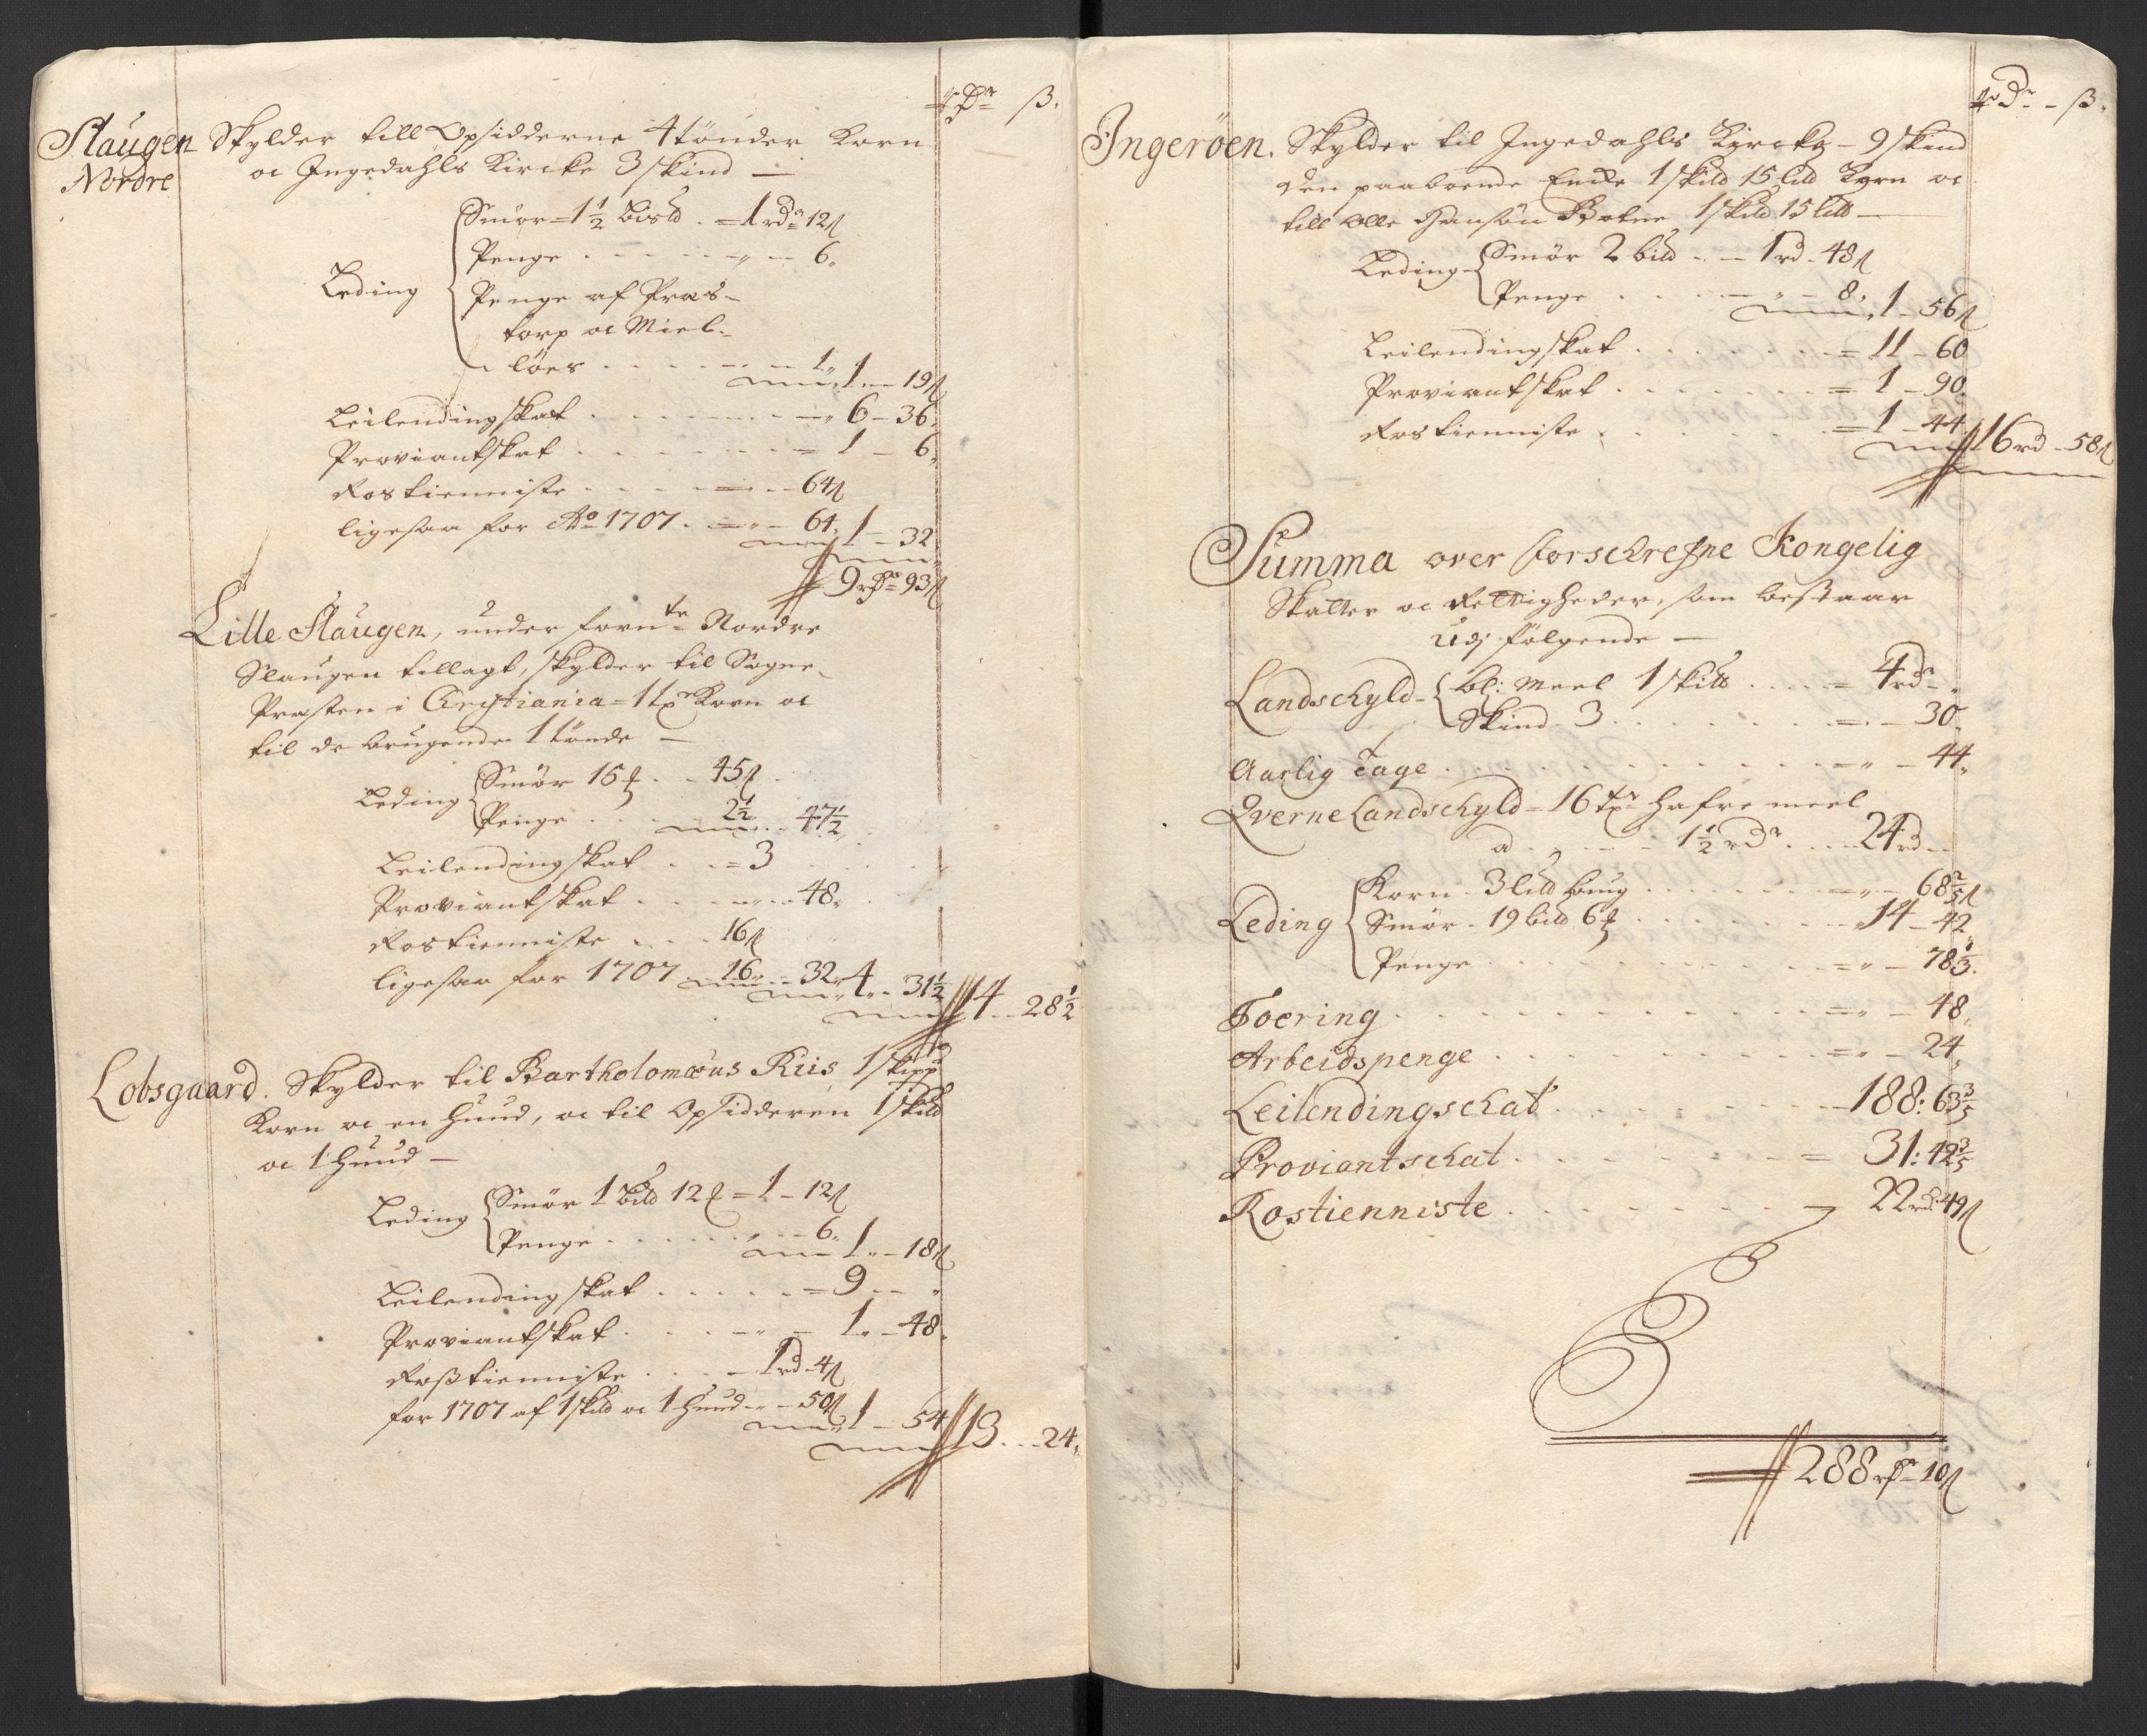 rdr ß.
Slaugen Skylder till Opsidderne 4 tönder Korn
Nordre oc Ingedahls Kircke 3 skind —
Smör = 1½ bisld . = 1 rdr 12ß
Penge . . . . . „ — 6.
Leding
Penge af Præs-
torp oc Miel-
löes . . . . . 1„ 1 — 19ß
Leilendingskat . . . . . 6 — 36.
Proviantskat . . . . . = 1 — 6.
Rostienniste . . . . . 64ß
ligesaa for Ao 1707 . — „ — 64. 1 — 32
9 rdr 93ß
Lille Slaugen, under fornte Nordre
Slaugen tillagt, skylder til Sogne-
Præsten i Christiania = 1 tr Korn oc
til de brugende 1 tönde —
Leding Smör 15 ℔ . . 45ß
Penge . . . 2½ . . 47½
Leilendingskat . . = 3
Proviantskat . . . . . 48„
Rostienniste . . . 16ß
ligesaa for 1707 . . 16„ — 32„ 4 — 31½ 14 — 28½
Lobsgaard. Skylder til Bartholomæus Riis 1 skippd
Korn oc en huud, oc til Opsidderen 1 skild
oc 1 huud —
Leding Smör 1 bild 12 ℔ = 1 — 12ß
Penge . . . . . 6„ 1 „ — 18ß
Leilendingskat . . . . . = 9 — „
Proviantskat . . . . — 1 „ — 48.
Rostienniste . . . — 1 rd 4ß
for 1707 af 1 skild oc 1 huud — 50ß 1 — 54 13 . . 24„
rdr — ß.
Ingeröen. Skylder til Ingedahls Kircke — 9 skind
den paaboende Encke 1 skild 15 lild Korn oc
till Olle Hansön Botne 1 skild 15 lild —
Leding Smör 2 bild . — 1 rd — 48ß
Penge . . . — „ — 8„ 1 — 56ß
Leilendingskat . . . . . = 11 — 60
Proviantskat . . . . . = 1 — 90.
Rostienniste . . . . . = 1 — 44. 16 rd — 58ß
Summa over forschrefne Kongelig
Skatter oc Rettigheder, som bestaar
udj fölgende —
Landschyld bl: Meel 1 skild . . . = 4 rdr „
Skind 3 . . . . . . = — 30.
Aarlig Tage . . . . . . . . — „ — 44„
Qverne Landschyld = 16 tr hafre meel
a . . . — 1½ rdr . . . 24 rd —
Korn 3 lild byug . . . . . — „ — 68⅖ß
Leding Smör 19 bild 6 ℔ . . . . . 14 — 42
Penge . . . . . . . = „ — 78⅓.
Foering . . . . . . . . . = „ — 48„
Arbeidspenge . . . . . . . = „ — 24„
Leilendingschat . . . . . . . — 188: 63⅗
Proviantschat . . . . . . = 31: 42⅗
Rostienniste . . . . . . 22 rd: 49ß
288 rdr 10ß